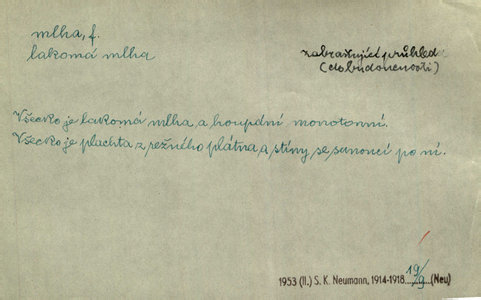 mlha, f.
lakomá mlha
zabraňující průhled
(do budoucnosti)
Všecko je lakomá mlha, a houpání monotonní.
Všecko je plachta z režného plátna, a stíny se sunoucí po ní.
1953 (II.) S. K. Neumann, 1914-1918 19/9 (Neu)